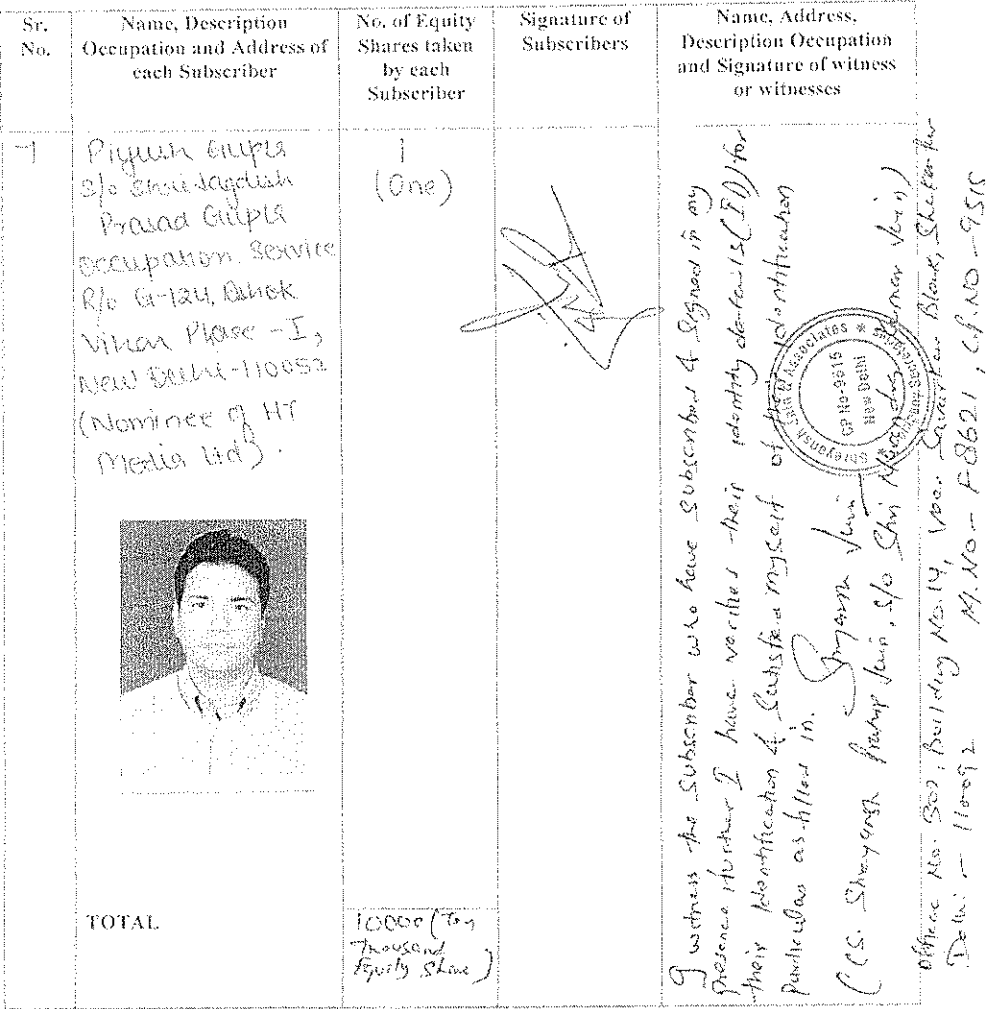 Sr.
No.
Name, Description
Occupation and Address of
each Subscriber
No. of Equity
Shares taken
by each
Subscriber
Signature of
Subscribers
Name, Address,
Description Occupation
and Signature of witness
or witnesses
Piyush Gupta
S/o Shri Jagdish
Prasad Gupta
Occupation. Service
R/o G-124, Ashok
Vihar Phase - I,
New Delhi-110052
(Nominee of HT
Media Ltd).
1
(One)
TOTAL
10000 (Ten
Thousand
Equity Share)
I witness the Subscriber who have Subscribed & Signed in my
presence further I have verified their identity details (ID) for
their identification & Satisfied myself of their identification
particulars as filled in.
Shreyansh Jain
(CS. Shreyansh Pratap Jain, S/o Shri Kumar Jain)
Office No. 302, Building No. 14, Veer Savarkar Block, Shakarpur
Delhi - 110092 M. NO - F8621, C.P. NO - 9515
Shreyansh Jain & Associates
Company Secretaries
CP No-9515
New Delhi